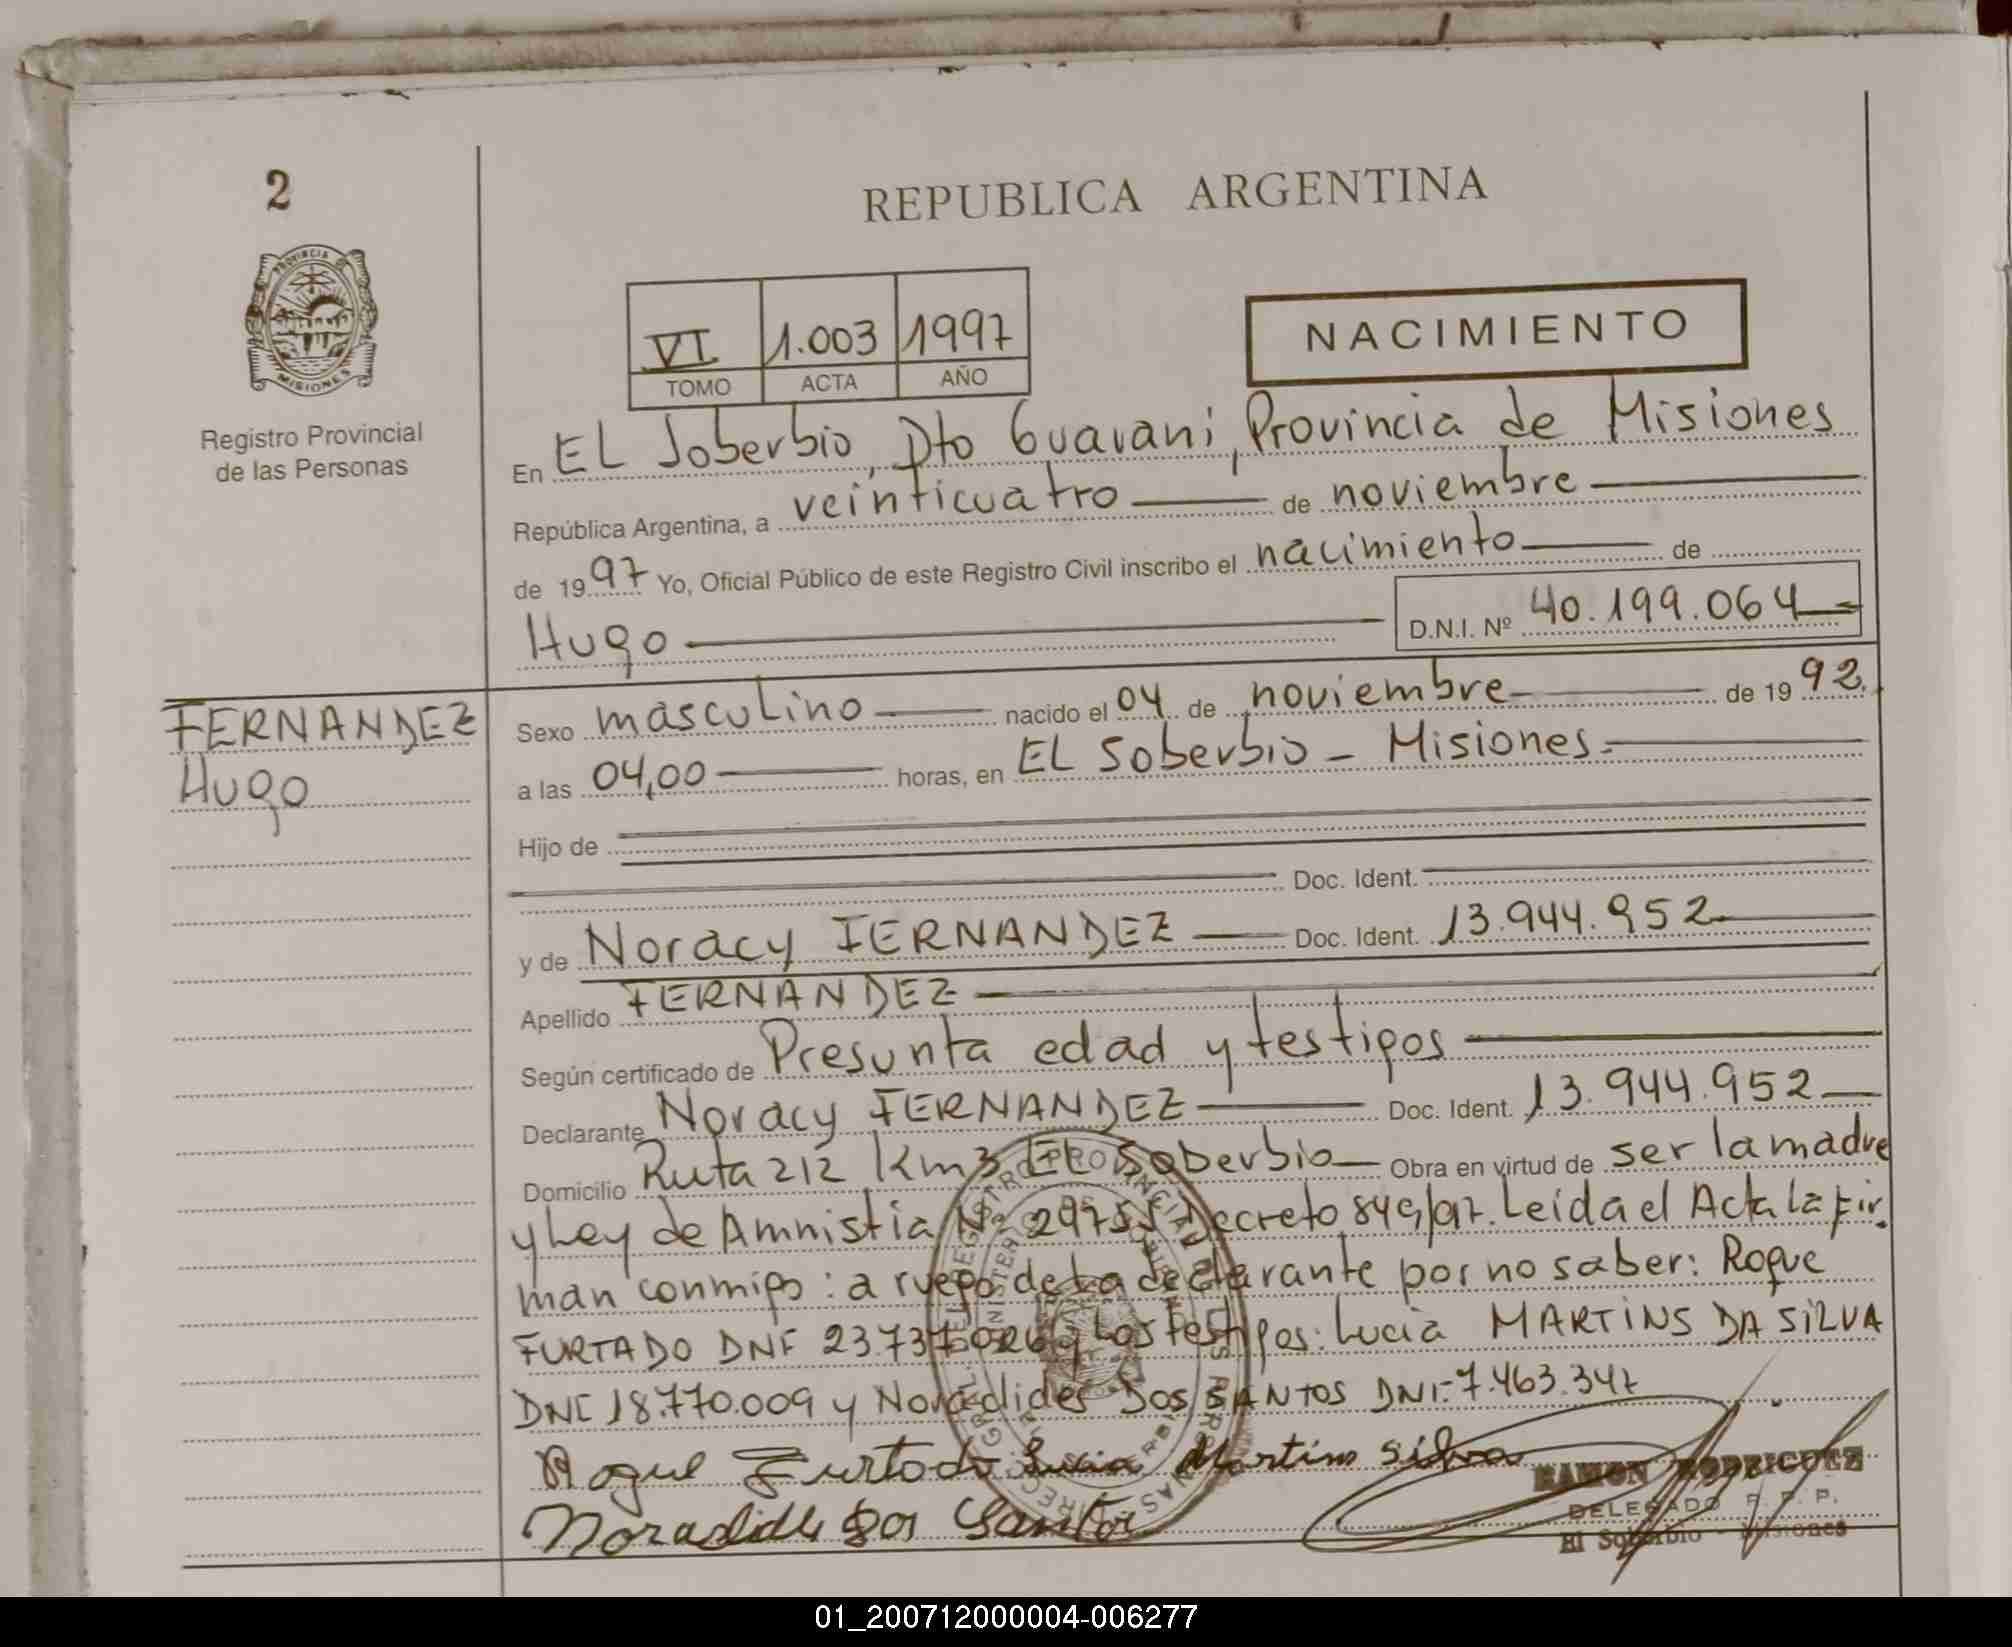 2
REPUBLICA ARGENTINA
PROVINCIA DE
MISIONES
Registro Provincial
de las Personas
VI 1.003 1997
TOMO ACTA AÑO
NACIMIENTO
En EL Soberbio, Dto Guarani, Provincia de Misiones
República Argentina, a veinticuatro de noviembre
de 1997 Yo, Oficial Público de este Registro Civil inscribo el nacimiento de
Hugo D.N.I. Nº 40.199.064
FERNANDEZ
Hugo
Sexo masculino nacido el 04 de noviembre de 1992.
a las 04,00 horas, en EL Soberbio - Misiones.
Hijo de
Doc. Ident.
y de Noracy FERNANDEZ Doc. Ident. 13.944.952
Apellido FERNANDEZ
Según certificado de Presunta edad y testigos
Declarante Noracy FERNANDEZ Doc. Ident. 13.944.952
Domicilio Ruta 212 Km3 EL Soberbio Obra en virtud de ser la madre
y Ley de Amnistia Nº Decreto 849/97. Leida el Acta la fir
man conmigo: a ruego de la declarante por no saber: Roque
FURTADO DNI 23.737.026 y Los testigos: Lucia MARTINS DA SILVA
DNI 18.770.009 y Noraclides DOS SANTOS DNI: 7.463.347
Roque Furtado Lucia Martins Silva
Noraclides dos Santos
RAMON RODRIGUEZ
DELEGADO R. P. P.
El Soberbio - Misiones
01_200712000004-006277